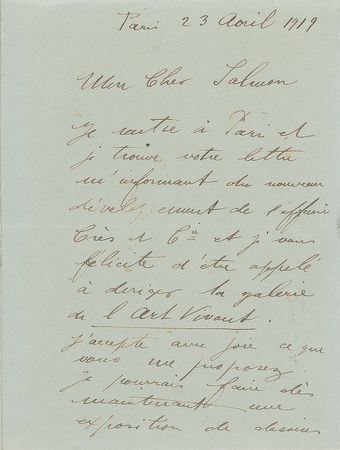 Paris 23 Avril 1919
Mon Cher Salmon
Je rentre à Pari et
je trouve votre lettre
m'informant du nouveau
développement de l'affaire
Crès & Cie et je vous
félicite d'être appelé
à diriger la galerie
de l'Art Vivant.
j'accepte avec joie ce que
vous me proposez
je pourrais faire dès
maintenant une
exposition de dessins